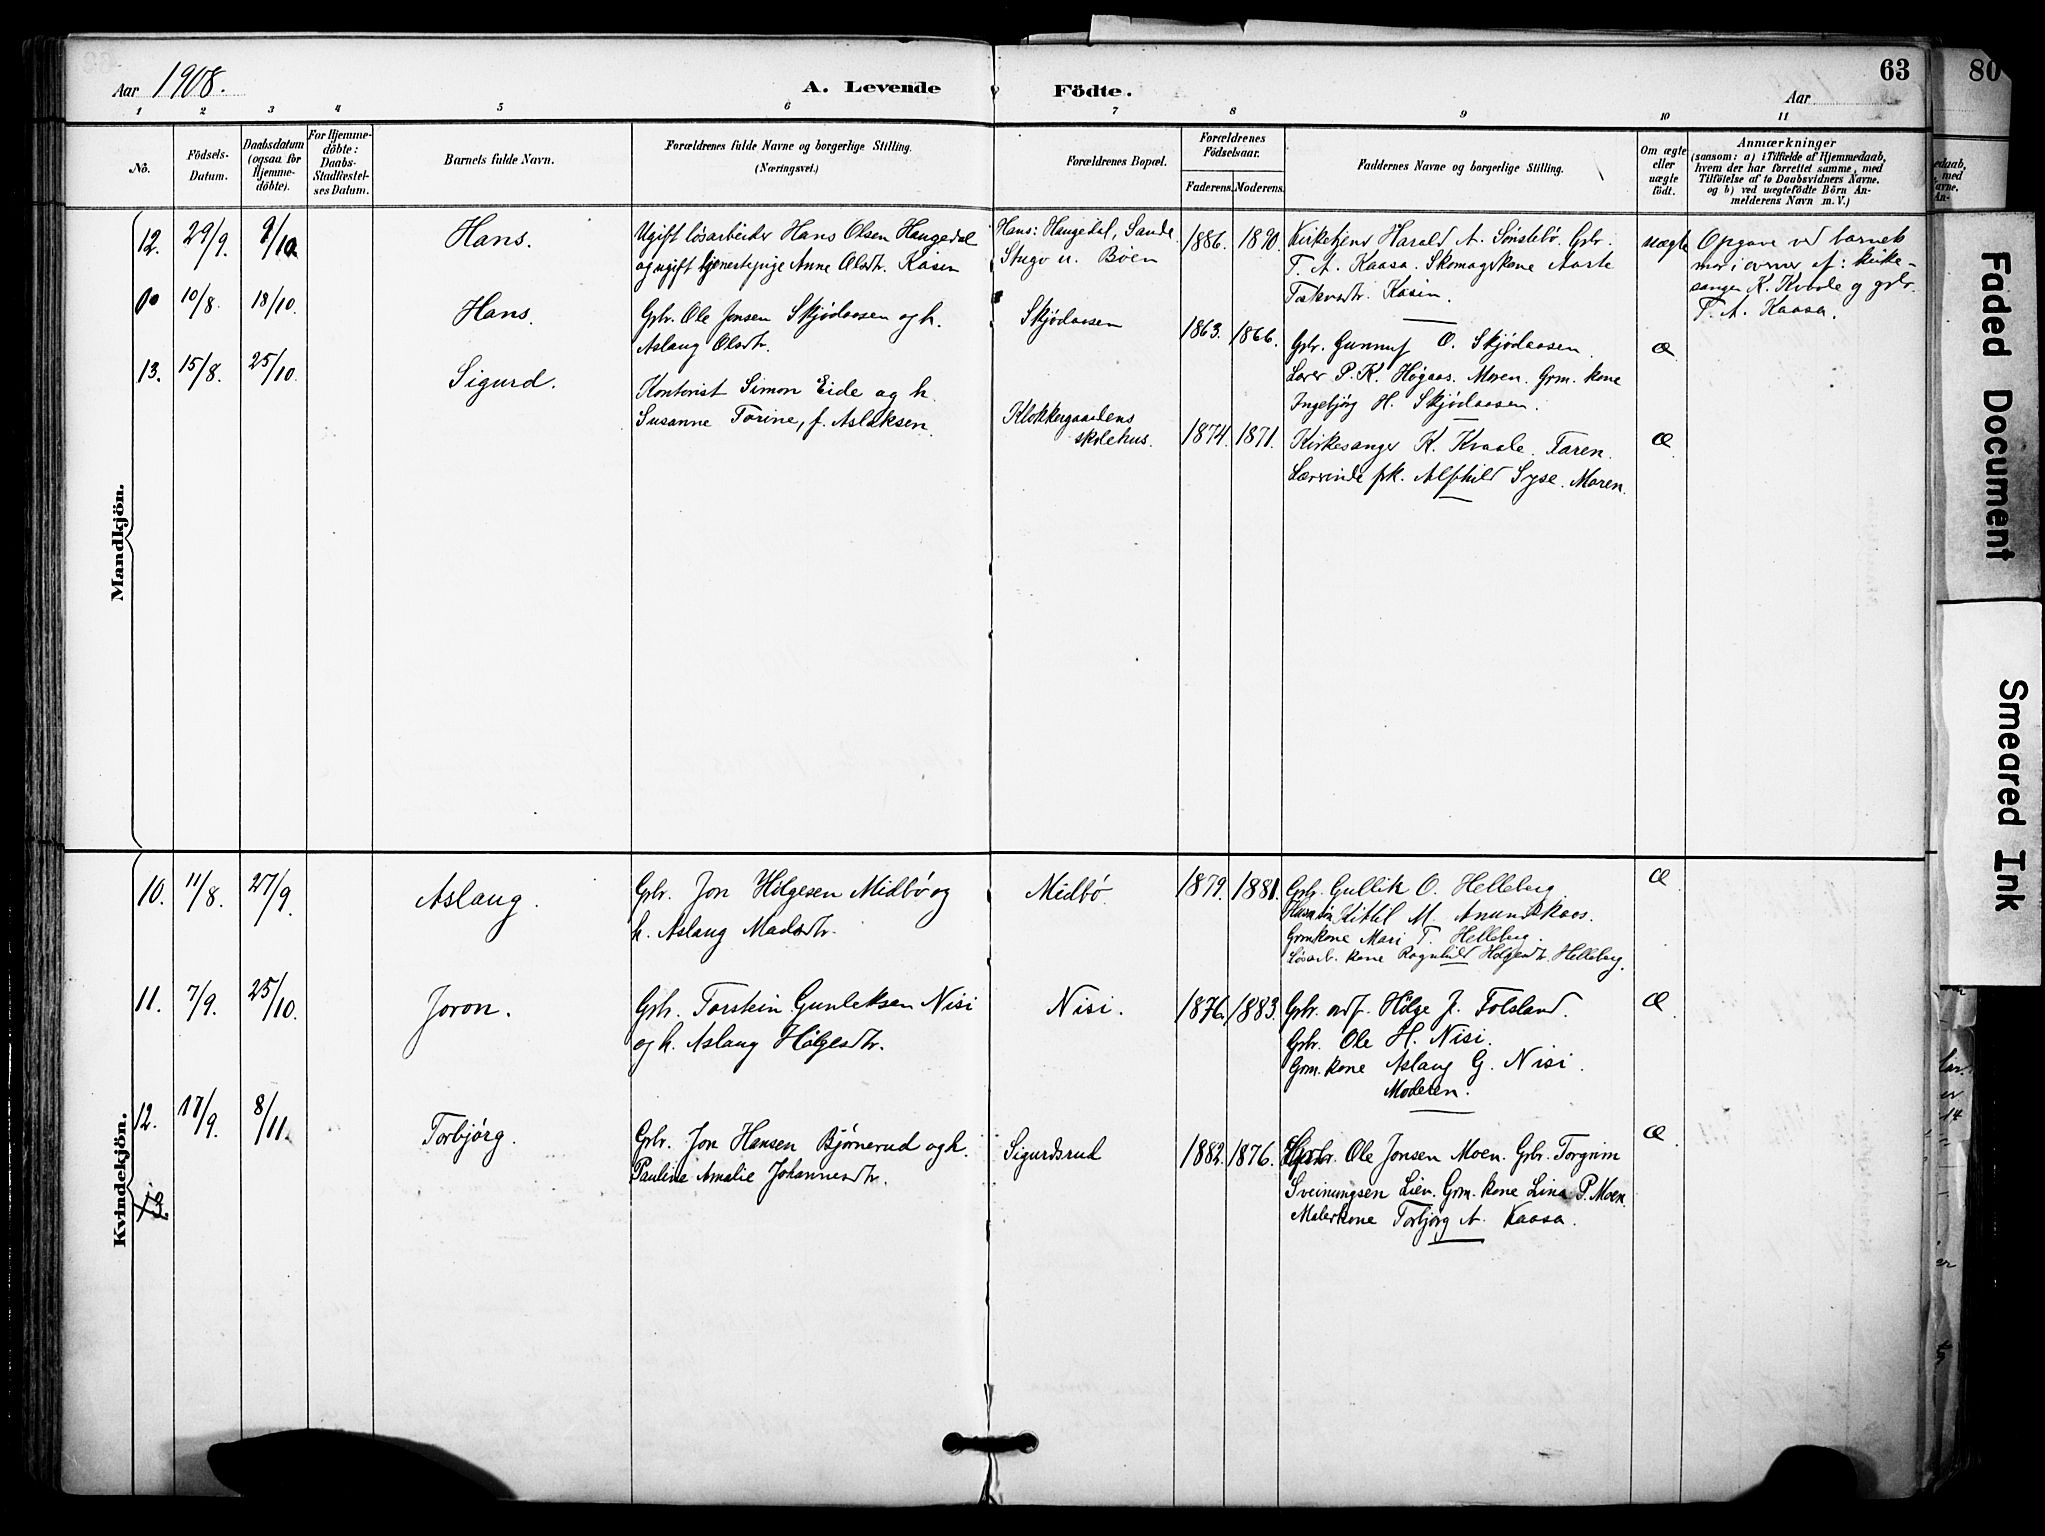 Aar 1908.
A. Levende Födte.
Aar
63
80
1 2 3 4 5 6 7 8 9 10 11
No.
Födsels-
Datum.
Daabsdatum
(ogsaa for
Hjemme-
döbte).
For Hjemme-
döbte:
Daabs-
Stadfæstel-
ses Datum.
Barnets fulde Navn.
Forældrenes fulde Navne og borgerlige Stilling.
(Næringsvei.)
Forældrenes Bopæl.
Forældrenes
Födselsaar.
Faderens. Moderens.
Faddernes Navne og borgerlige Stilling.
Om ægte
eller
uægte
födt.
Anmærkninger
(saasom: a) i Tilfælde af Hjemmedaab,
hvem der har forrettet samme, med
Tilföielse af to Daabsvidners Navne.
og b) ved uægtefödte Börn An-
melderens Navn m. V.)
Mandkjön.
12. 29/9. 9/10. Hans.
Ugift løsarbeider Hans Olsen Haugedal
og ugift tjenestepige Anne Olsdtr. Kåsin
Hans: Haugedal, Sande.
Stugo u. Bøen
1886. 1890.
Kirketjener Harald A. Sønstebø. Gbr.
T. A. Kaasa. Skomagerkone Aaste
Tarkvedtr. Kasin.
uægte
Opgave ved barnets
mor i overvær af: kirke-
sanger K. Kvaale og gbr.
T. A. Kaasa.
10/8. 18/10. Hans.
Gbr. Ole Jonsen Skjødaasen og h.
Aslaug Olsdtr.
Skjødaasen
1863. 1866.
Gbr. Gunnuf O. Skjødaasen.
Lærer P. K. Høgaas. Moren. Grm. kone
Ingebjørg H. Skjødaasen.
Æ
13. 15/8. 25/10. Sigurd.
Kontorist Simon Eide og h.
Susanne Torine, f. Aslaksen.
Klokkergaardens
skolehus.
1874. 1871.
Kirkesanger K. Kvaale. Faren.
Lærerinde frk. Alfhild Syse. Moren.
Æ
Kvindekjön.
10. 11/8. 27/9. Aslaug.
Gbr. Jon Hølgesen Midbø og
h. Aslaug Madsdtr.
Midbø
1879. 1881.
Gbr. Gullik O. Helleberg.
Kittil M. Anundskaas.
Grmkone Mari T. Helleberg.
Løsarb. kone Ragnhild Hølgesdtr. Helleberg.
Æ
11. 7/9. 25/10. Joron.
Gbr. Torstein Gunleksen Nisi
og h. Aslaug Hølgesdtr.
Nisi.
1876. 1883.
Gbr. ordf. Hølge J. Folsland.
Gbr. Ole H. Nisi.
Grm. kone Aslaug G. Nisi.
Moderen.
Æ
12. 17/9. 8/11. Torbjørg.
Gbr. Jon Hansen Bjørnerud og h.
Pauline Amalie Johannesdtr.
Sigurdsrud
1882. 1876.
Gbr. Ole Jonsen Moen. Gbr. Torgrim
Sveinungsen Lien. Grm. kone Lina P. Moen.
Malerkone Torbjørg A. Kaasa.
Æ
13
Faded Document
Smeared Ink